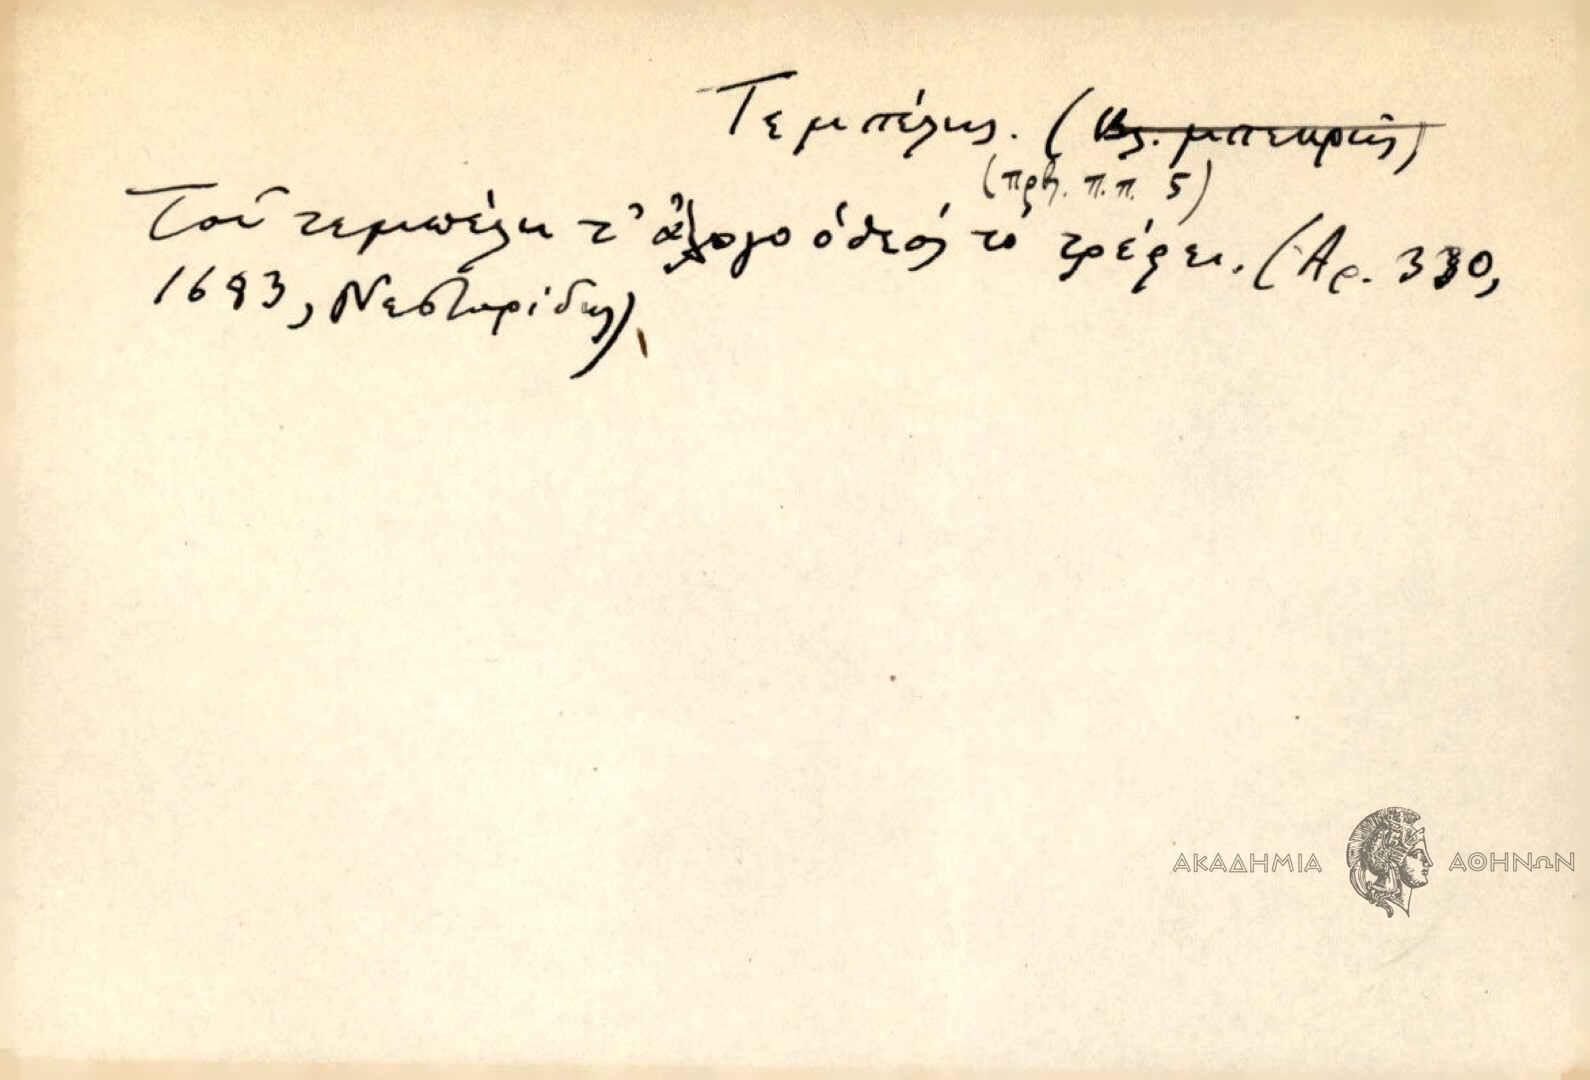 Τεμπέλης. (Βλ. μπεκρής)
(πρβ. π.π. 5)
Τοῦ τεμπέλη τ' ἄλογο ὁ θεός τό τρέφει. (Αρ. 330,
1683, Νεστορίδης)
ΑΚΑΔΗΜΙΑ ΑΘΗΝΩΝ